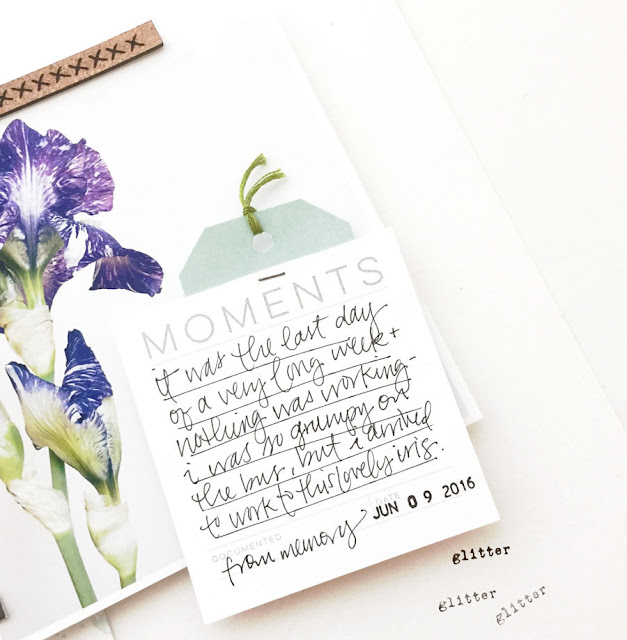 MOMENTS
it was the last day
of a very long week +
nothing was working-
i was so grumpy on
the bus, but i arrived
to work to this lovely iris.
DOCUMENTED
DATE
from memory
JUN 09 2016
glitter
glitter
glitter